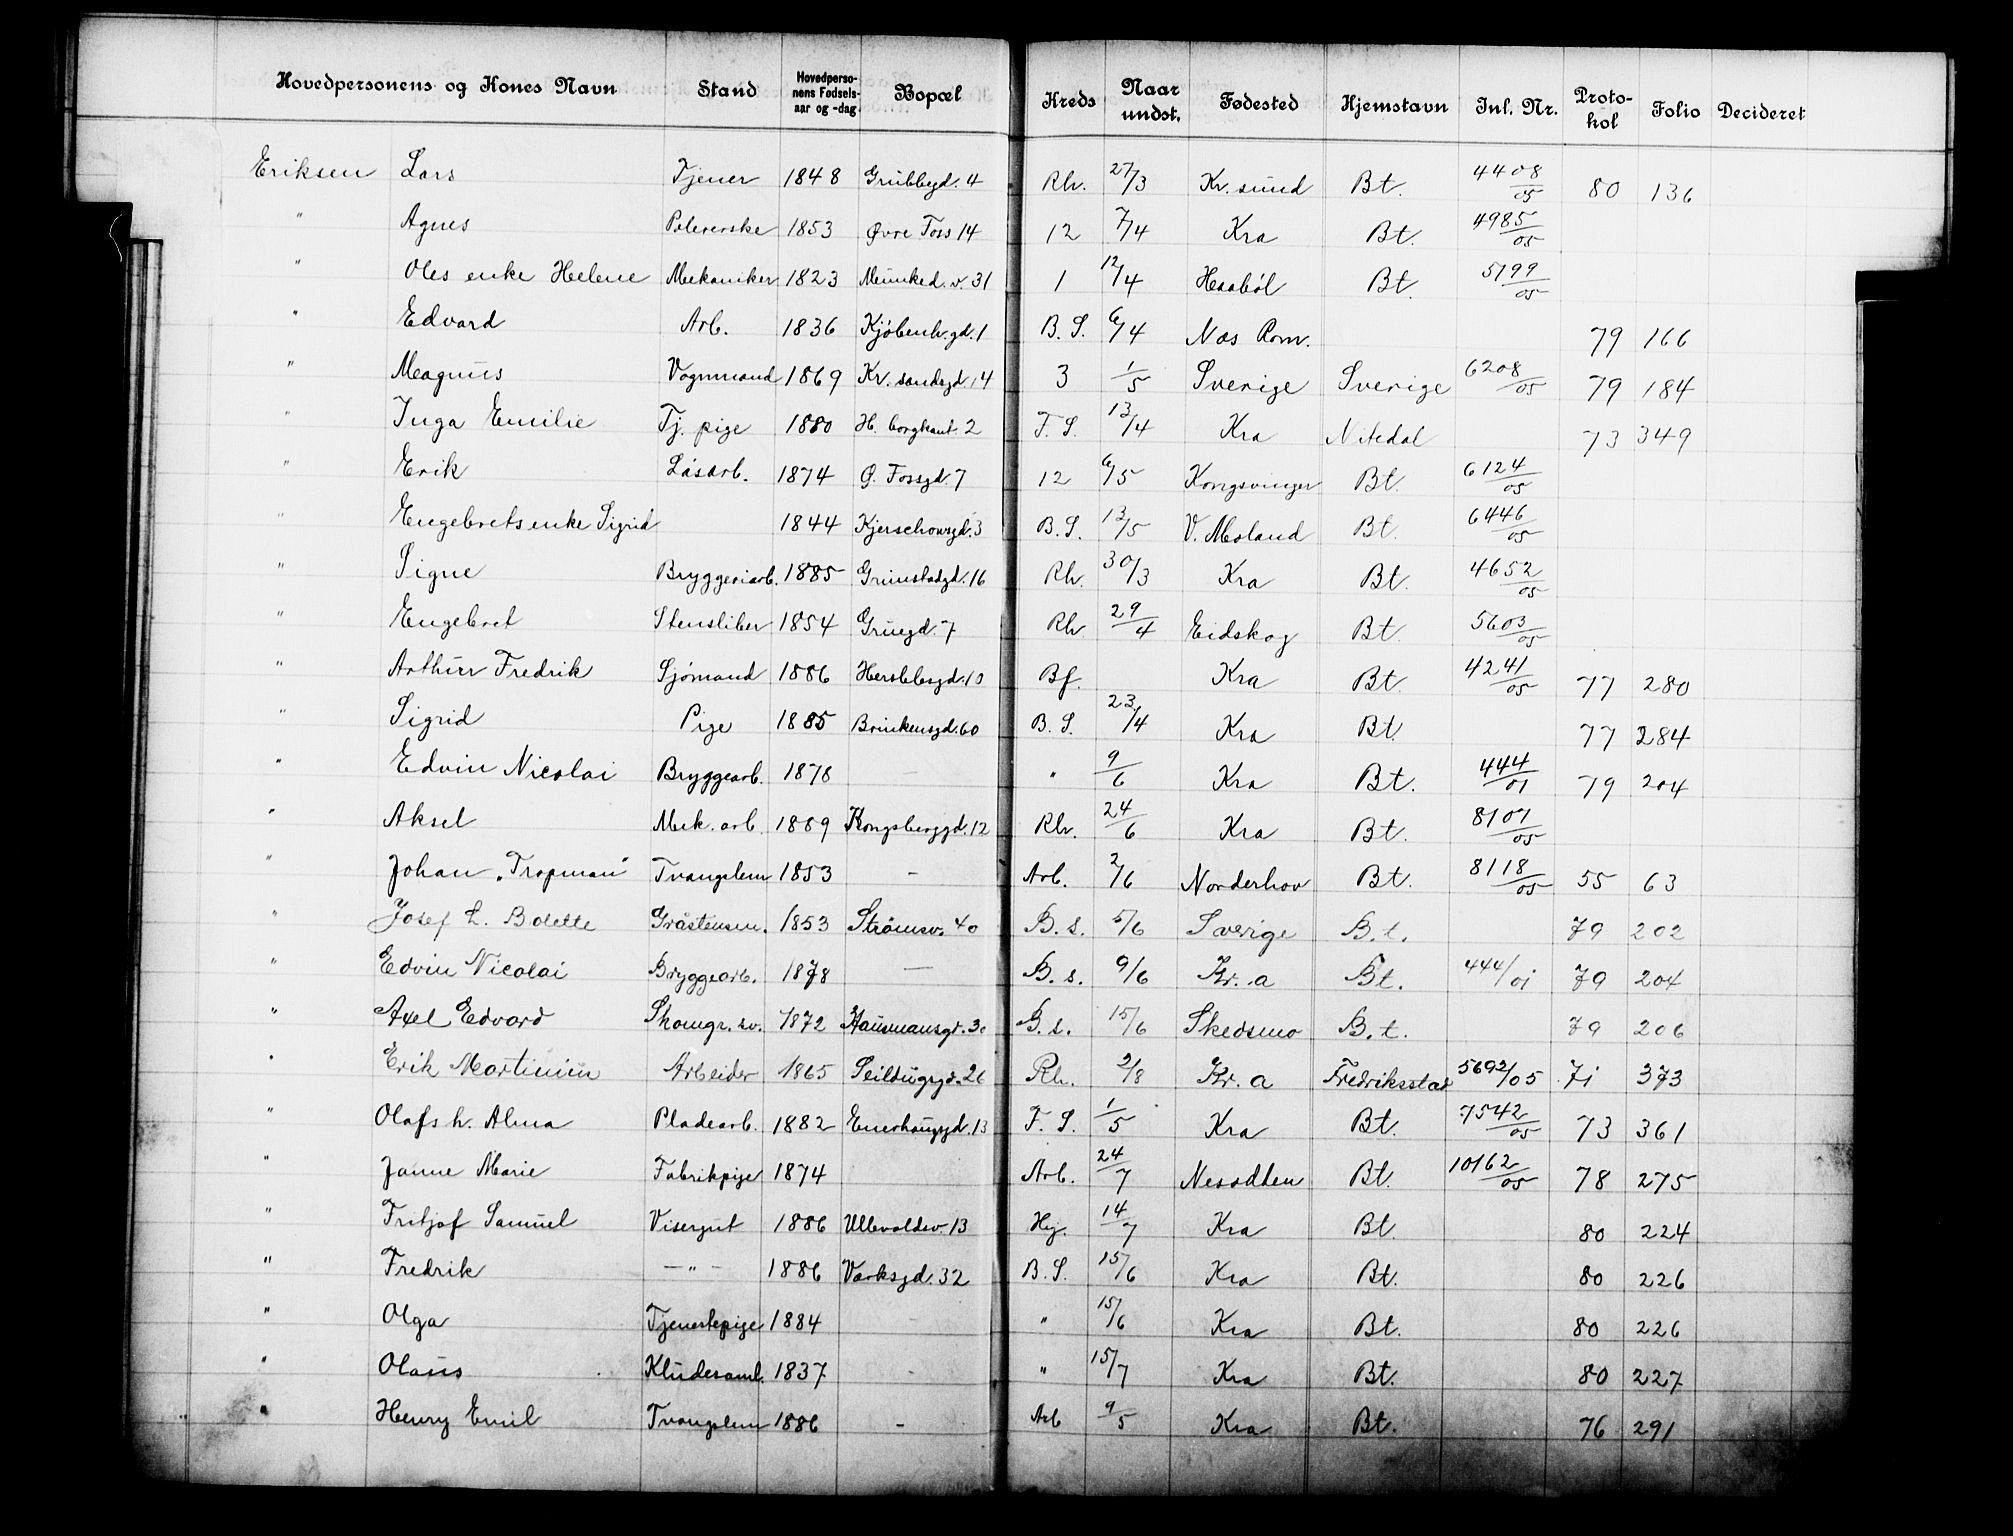 Hovedpersonens og Kones Navn Stand Hovedperso-nens Fødsels-aar og -dag. Bopæl Kreds Naar undst. Fødested Hjemstavn Inl. Nr. Proto-kol Folio Decideret
Eriksen Lars Tjener 1848 Grubbegd. 4 Rh. 27/3 Kr. sund Bt. 4408/05 80 136
" Agnes Polererske 1853 Øvre Foss 14 12 7/4 Kra Bt. 4985/05
" Oles enke Helene Mekaniker 1823 Munked. v. 31 1 12/4 Haaböl Bt. 5199/05
" Edvard Arb. 1836 Kjöbenh. gd. 1 B. S. 6/4 Næs Rom. 79 166
" Magnus Vognmand 1869 Kr. sandsgd. 14 3 1/5 Sverige Sverige 6208/05 79 184
" Inga Emilie Tj. pige 1880 H. borgkant. 2 F. S. 13/4 Kra Nitedal 73 349
" Erik Läsarb. 1874 Ø. Fossgd. 7 12 6/5 Kongsvinger Bt. 6124/05
" Engebrets enke Sigrid 1844 Kjerschowsgd. 3 B. S. 13/5 V. Moland Bt. 6446/05
" Signe Bryggeriarb. 1885 Grimstadgd. 16 Rh. 30/3 Kra Bt. 4652/05
" Engebret Stensliber 1854 Gruegd. 7 Rh 29/4 Eidskog Bt. 5603/05
" Arthur Fredrik Sjömand 1886 Herslebsgd. 10 Bf. Kra Bt. 4241/05 77 280
" Sigrid Pige 1885 Brinkensgd. 60 B. S. 23/4 Kra Bt. 77 284
" Edvin Nicolai Bryggearb. 1878 — " 9/6 Kra Bt. 444/01 79 204
" Aksel Mek. arb. 1889 Kongsberggd. 12 Rh. 24/6 Kra Bt. 8107/05
" Johan „Tropman" Tvangslem 1853 - Arb. 2/6 Norderhov Bt. 8118/05 55 63
" Josef h. Bolette Gråstensm. 1853 Strömsv. 40 B. s. 5/6 Sverige B. t. 79 202
" Edvin Nicolai Bryggearb. 1878 — B. s. 9/6 Kr. a Bt. 444/01 79 204
" Axel Edvard Skomgr. sv. 1872 Hausmansgt. 30 B. s. 15/6 Skedsmo B. t. 79 206
" Erik Martinius Arbeider 1865 Seildugsgt. 26 Rh. 2/8 Kr. a Fredriksstad 5692/05 71 373
" Olafs h. Alma Pladearb. 1882 Enerhauggd. 13 F. S. 1/5 Kra Bt. 7542/05 73 361
" Janne Marie Fabrikpige 1874 Arb. 24/7 Nesodden Bt. 10162/05 78 275
" Fritjof Samuel Visergut 1886 Ullevoldsv. 13 Hg. 14/7 Kra Bt. 80 224
" Fredrik — " — 1886 Værksgd. 32 B. S. 15/6 Kra Bt. 80 226
" Olga Tjenestepige 1884 " 15/6 Kra Bt. 80 226
" Olaus Kludesaml. 1837 - " 15/7 Kra Bt. 80 227
" Henry Emil Tvangslem 1886 - Arb 9/5 Kra Bt. 76 291